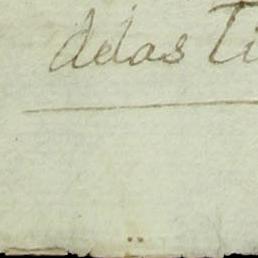 delas Ti